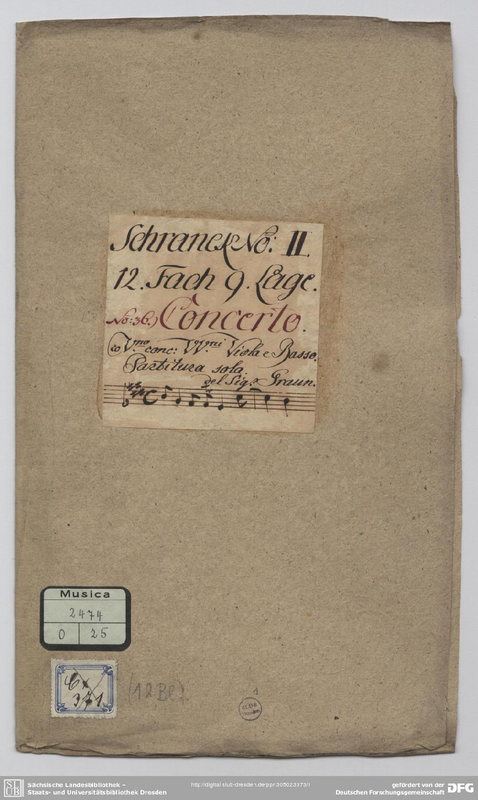 Schranck No: II.
12. Fach 9. Lage.
No: 36.) Concerto.
co V.no conc: VV.ni Viola e Basso.
Partitura sola.
del Sig.r Graun.
Musica
2474
O 25
Cx
(12Bl)
1
Sächsische Landesbibliothek –
Staats- und Universitätsbibliothek Dresden
gefördert von der
Deutschen Forschungsgemeinschaft
DFG